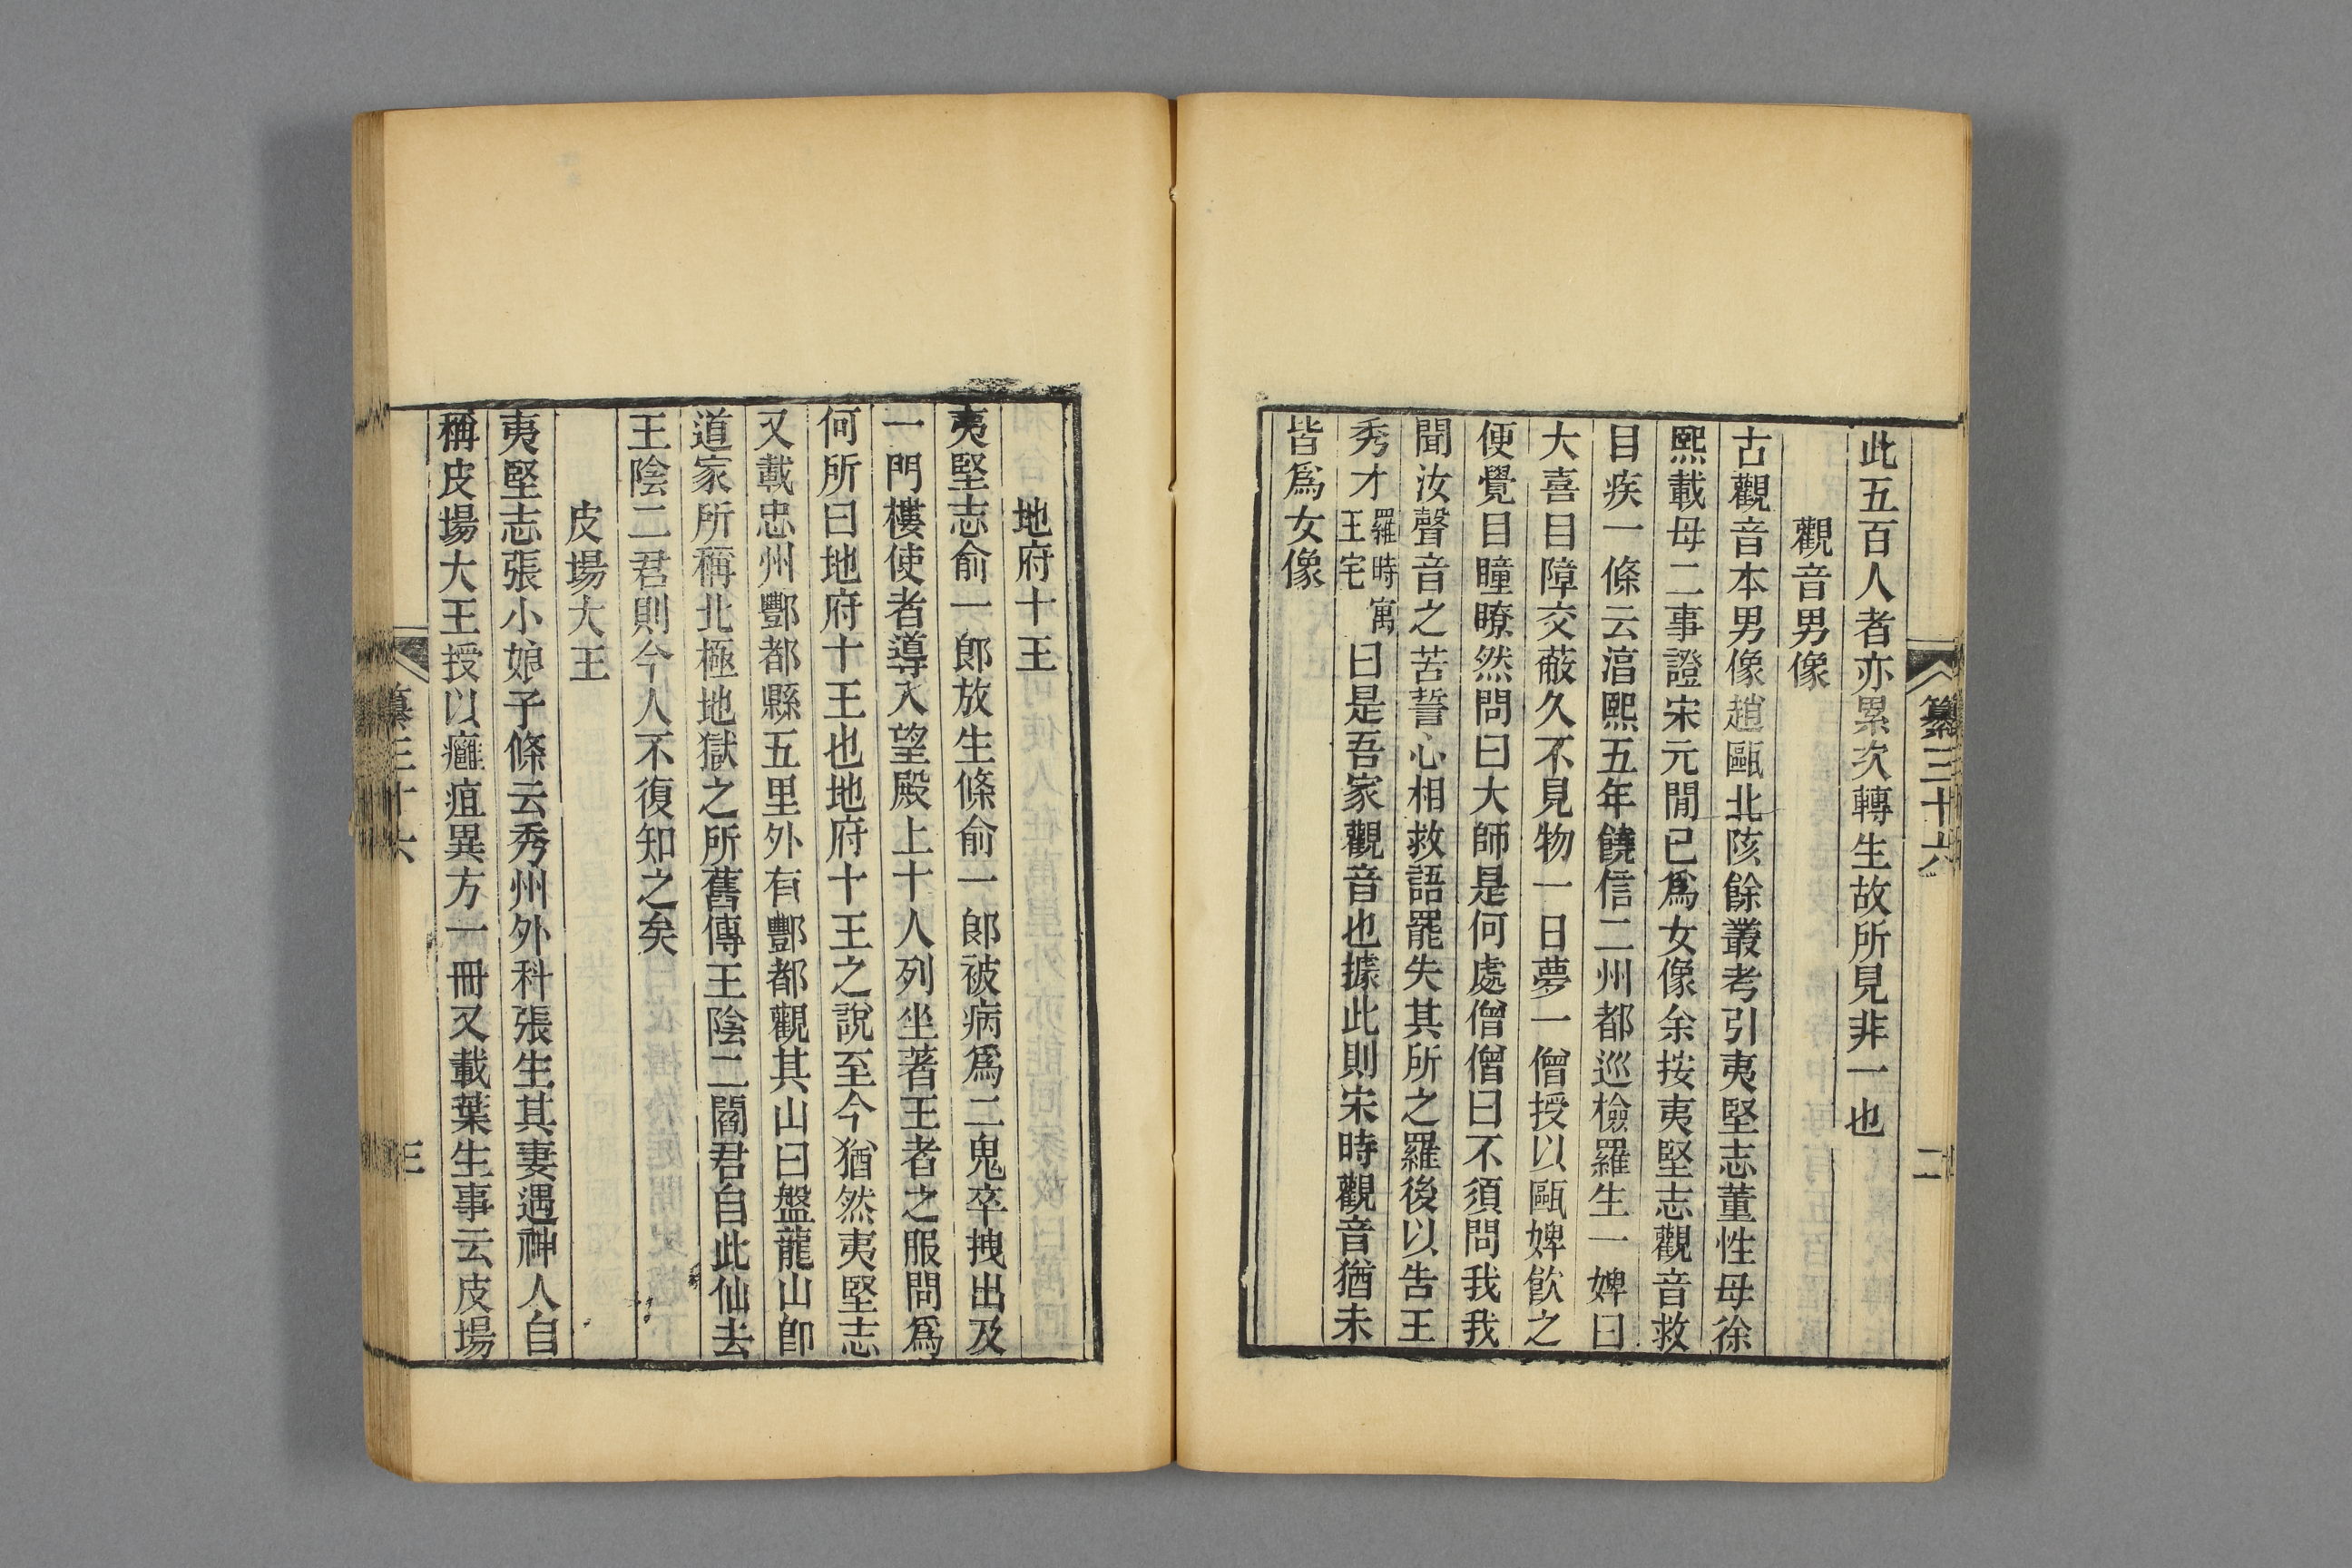 纂三十六
二
此五百人者亦累次轉生故所見非一也
觀音男像
古觀音本男像趙甌北陔餘叢考引夷堅志董性母徐
熙載母二事證宋元閒已爲女像余按夷堅志觀音救
目疾一條云淳熙五年饒信二州都巡檢羅生一婢曰
大喜目障交蔽久不見物一日夢一僧授以甌婢飮之
便覺目瞳瞭然問曰大師是何處僧僧曰不須問我我
聞汝聲音之苦誓心相救語罷失其所之羅後以吿王
秀才羅時寓王宅曰是吾家觀音也據此則宋時觀音猶未
皆爲女像
地府十王
夷堅志俞一郞放生條俞一郞被病爲二鬼卒拽出及
一門樓使者導入望殿上十人列坐著王者之服問爲
何所曰地府十王也地府十王之說至今猶然夷堅志
又載忠州酆都縣五里外有酆都觀其山曰盤龍山卽
道家所稱北極地獄之所舊傳王陰二閻君自此仙去
王陰二君則今人不復知之矣
皮場大王
夷堅志張小娘子條云秀州外科張生其妻遇神人自
稱皮場大王授以癰疽異方一冊又載葉生事云皮場
纂三十六
三